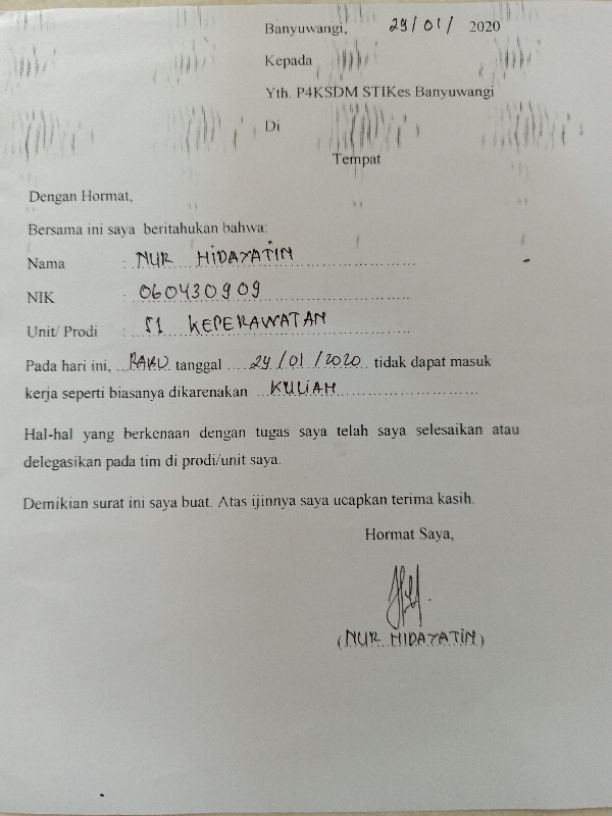 Banyuwangi, 29/01/ 2020
Kepada
Yth. P4KSDM STIKes Banyuwangi
Di
Tempat
Dengan Hormat,
Bersama ini saya beritahukan bahwa:
Nama : NUR HIDAYATIN
NIK : 060430909
Unit/ Prodi : S1 KEPERAWATAN
Pada hari ini, RABU tanggal 29/01/2020 tidak dapat masuk
kerja seperti biasanya dikarenakan KULIAH
Hal-hal yang berkenaan dengan tugas saya telah saya selesaikan atau
delegasikan pada tim di prodi/unit saya.
Demikian surat ini saya buat. Atas ijinnya saya ucapkan terima kasih.
Hormat Saya,
(NUR HIDAYATIN)